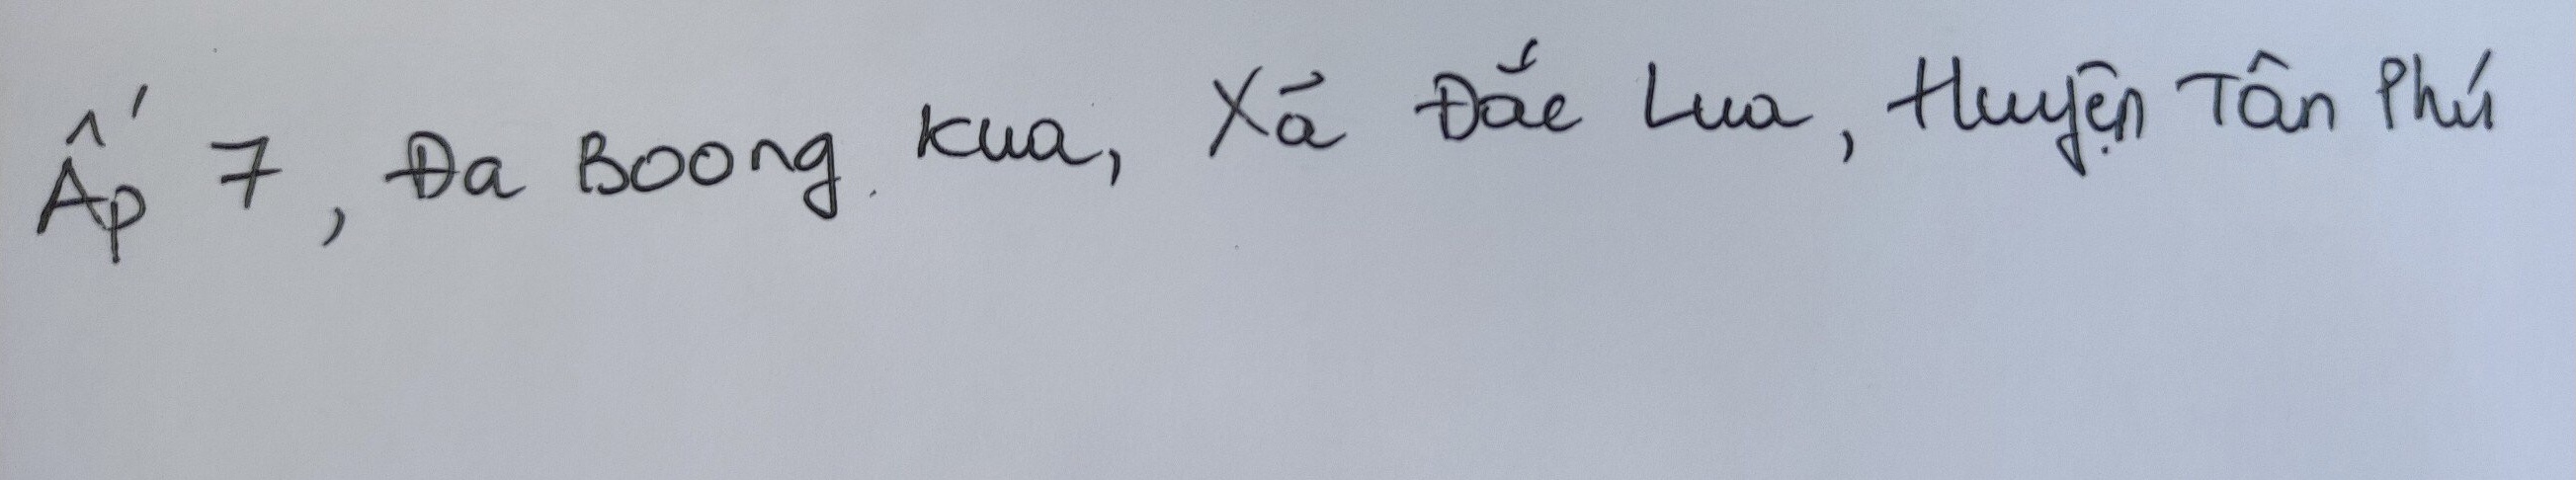 Ấp 7, Đa Boong Kua, Xã Đắc Lua, Huyện Tân Phú